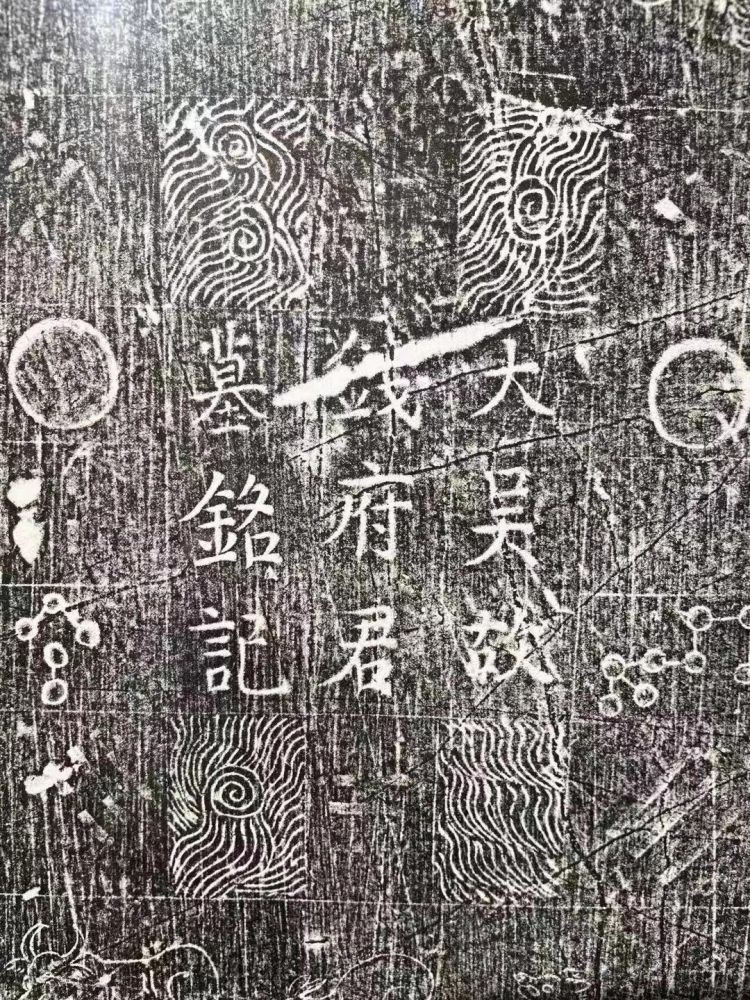 大吳故
錢府君
墓銘記